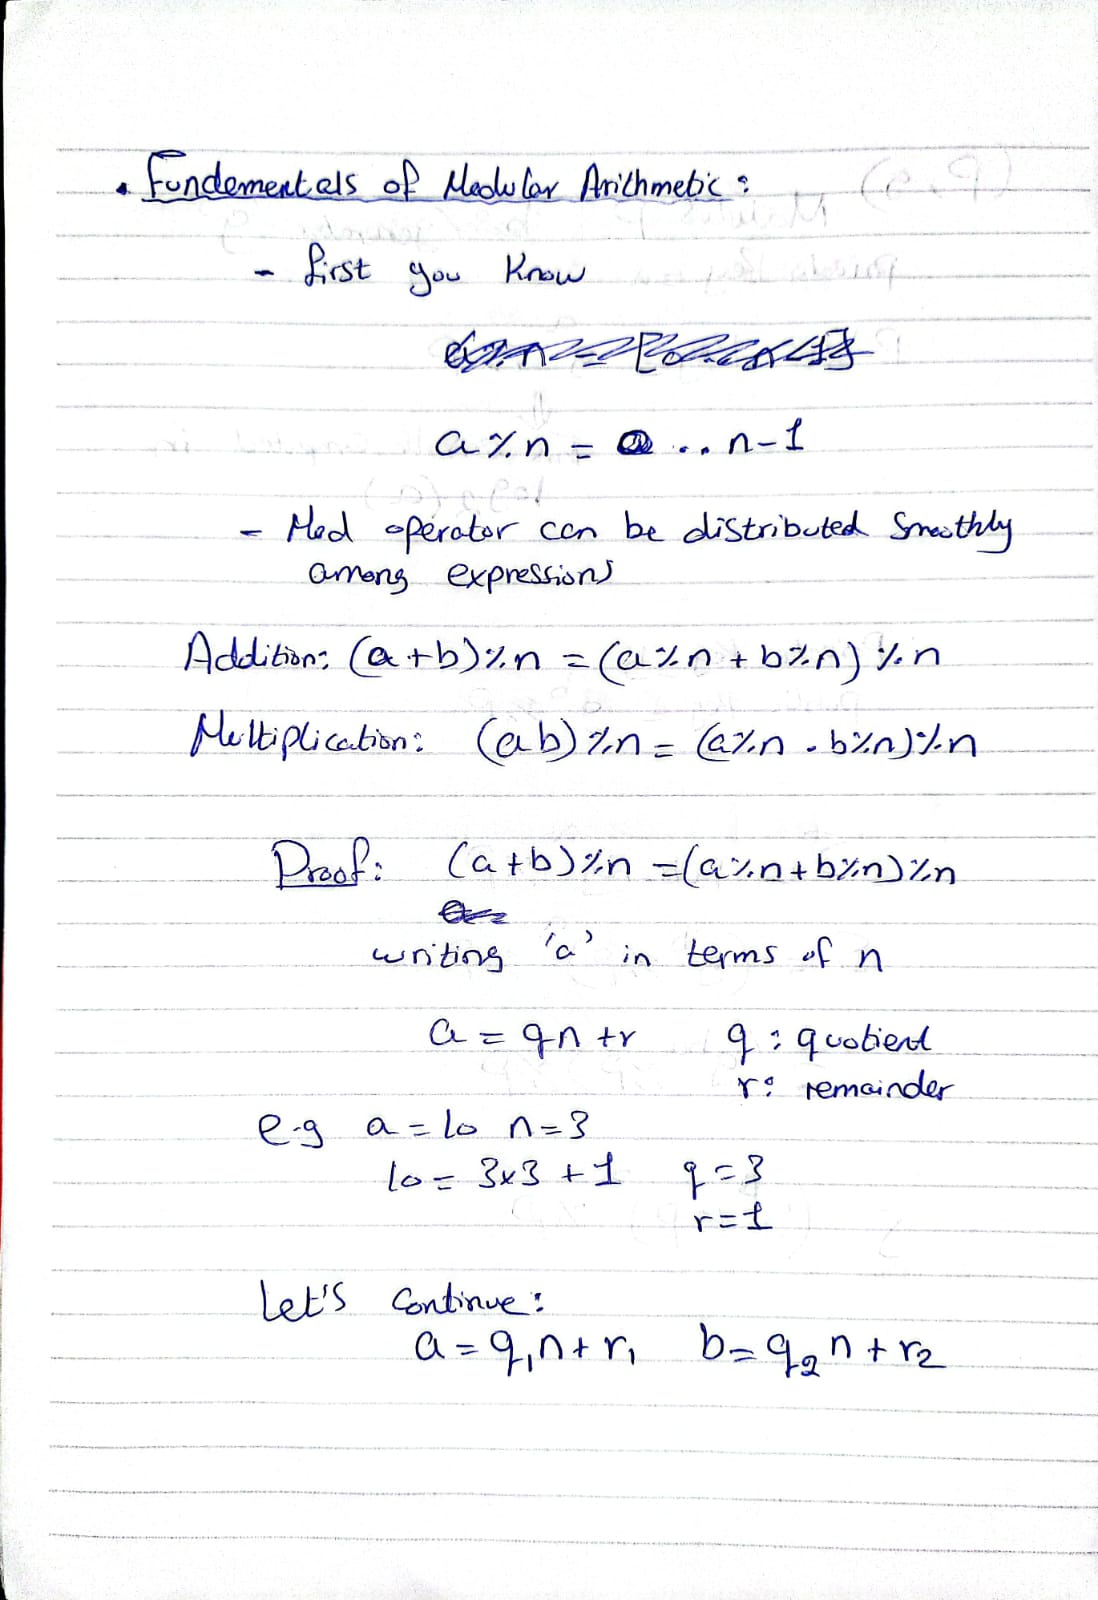 • Fundementals of Modular Arithmetic:
- first you Know
a % n = 0 .. n-1
- Mod operator can be distributed smoothly
among expressions
Addition: (a+b)%n = (a%n + b%n)%n
Multiplication: (ab)%n = (a%n . b%n)%n
Proof: (a+b)%n = (a%n + b%n)%n
writing 'a' in terms of n
a = qn + r q : quotient
r : remainder
e.g a = 10 n = 3
10 = 3x3 + 1 q = 3
r = 1
Let's Continue:
a = q₁n + r₁ b = q₂n + r₂